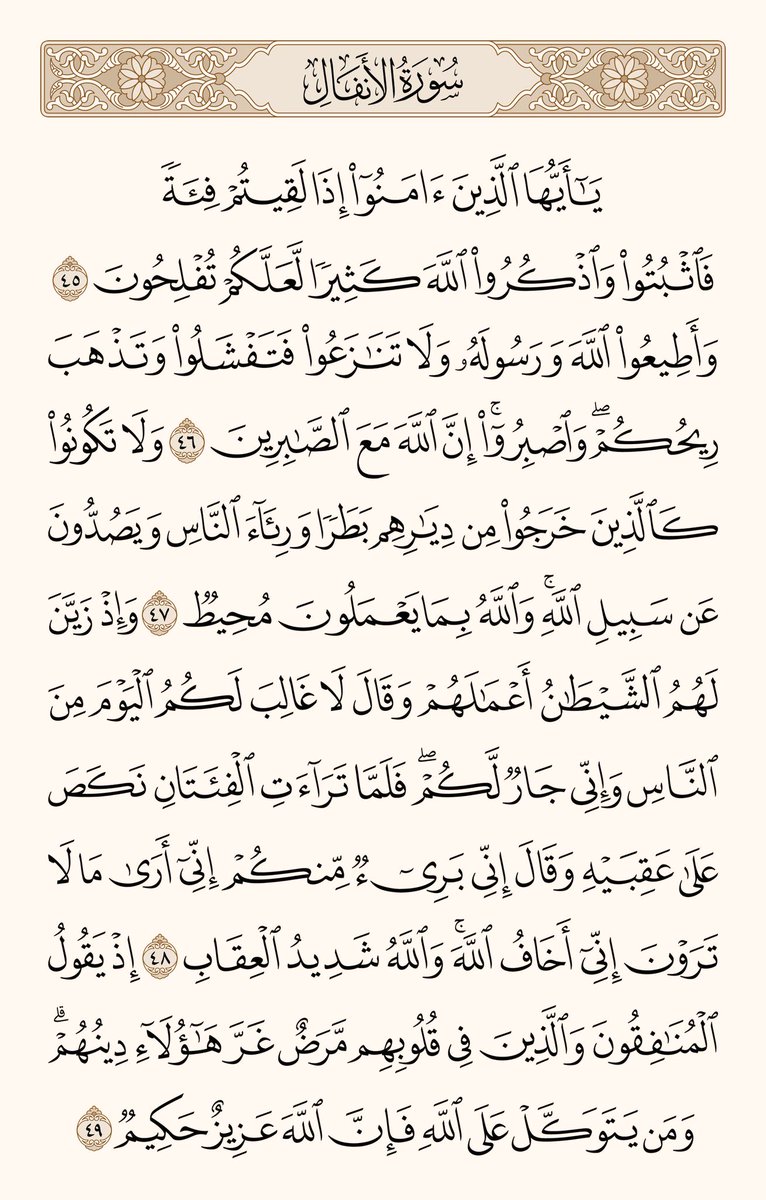 سُورَةُ الأَنفَالِ
يَـٰٓأَيُّهَا ٱلَّذِينَ ءَامَنُوٓا۟ إِذَا لَقِيتُمْ فِئَةً
فَٱثْبُتُوا۟ وَٱذْكُرُوا۟ ٱللَّهَ كَثِيرًا لَّعَلَّكُمْ تُفْلِحُونَ ٤٥
وَأَطِيعُوا۟ ٱللَّهَ وَرَسُولَهُۥ وَلَا تَنَـٰزَعُوا۟ فَتَفْشَلُوا۟ وَتَذْهَبَ
رِيحُكُمْ ۖ وَٱصْبِرُوٓا۟ ۚ إِنَّ ٱللَّهَ مَعَ ٱلصَّـٰبِرِينَ ٤٦ وَلَا تَكُونُوا۟
كَٱلَّذِينَ خَرَجُوا۟ مِن دِيَـٰرِهِم بَطَرًا وَرِئَآءَ ٱلنَّاسِ وَيَصُدُّونَ
عَن سَبِيلِ ٱللَّهِ ۚ وَٱللَّهُ بِمَا يَعْمَلُونَ مُحِيطٌ ٤٧ وَإِذْ زَيَّنَ
لَهُمُ ٱلشَّيْطَـٰنُ أَعْمَـٰلَهُمْ وَقَالَ لَا غَالِبَ لَكُمُ ٱلْيَوْمَ مِنَ
ٱلنَّاسِ وَإِنِّى جَارٌ لَّكُمْ ۖ فَلَمَّا تَرَآءَتِ ٱلْفِئَتَانِ نَكَصَ
عَلَىٰ عَقِبَيْهِ وَقَالَ إِنِّى بَرِىٓءٌ مِّنكُمْ إِنِّىٓ أَرَىٰ مَا لَا
تَرَوْنَ إِنِّىٓ أَخَافُ ٱللَّهَ ۚ وَٱللَّهُ شَدِيدُ ٱلْعِقَابِ ٤٨ إِذْ يَقُولُ
ٱلْمُنَـٰفِقُونَ وَٱلَّذِينَ فِى قُلُوبِهِم مَّرَضٌ غَرَّ هَـٰٓؤُلَآءِ دِينُهُمْ ۗ
وَمَن يَتَوَكَّلْ عَلَى ٱللَّهِ فَإِنَّ ٱللَّهَ عَزِيزٌ حَكِيمٌ ٤٩